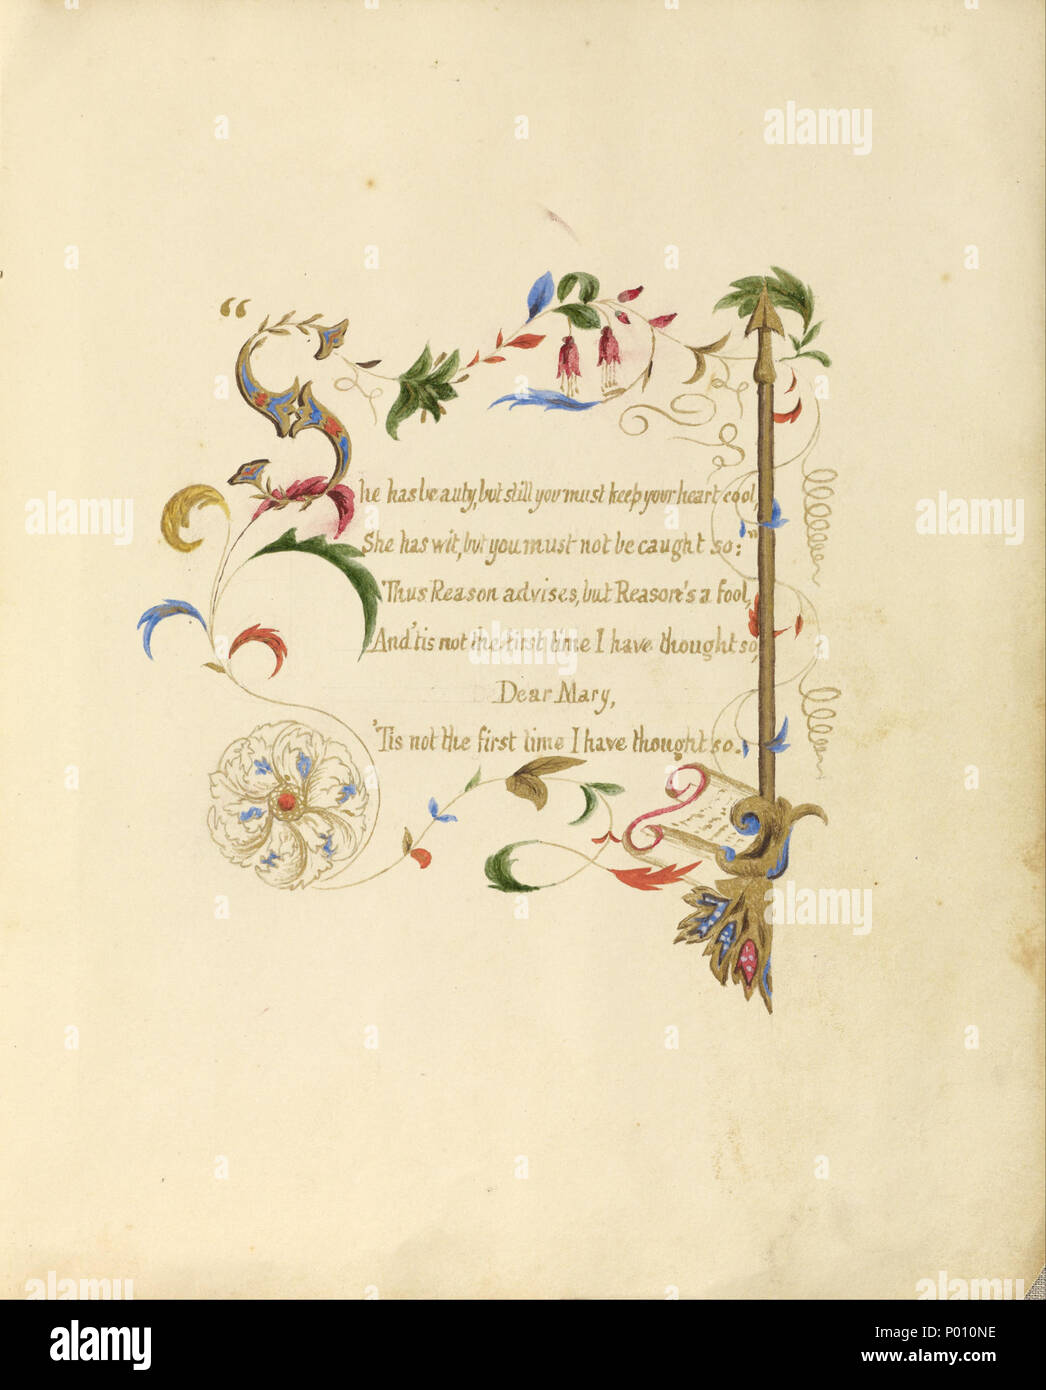 “She has beauty, but still you must keep your heart cool,
She has wit, but you must not be caught so:”
Thus Reason advises, but Reason's a fool,
And 'tis not the first time I have thought so,
Dear Mary,
'Tis not the first time I have thought so.
alamy
alamy
Image ID: P010NE
www.alamy.com